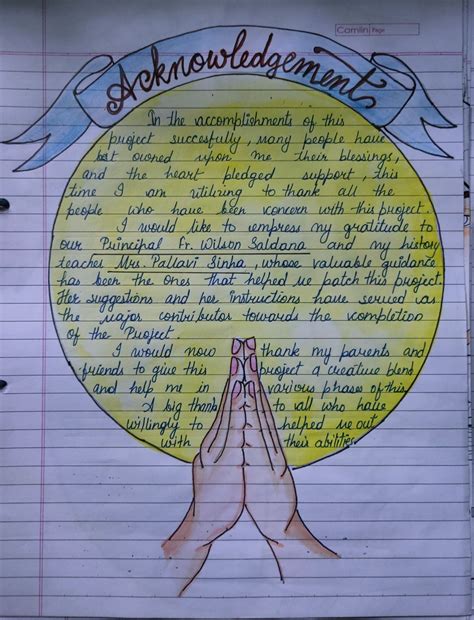 Camlin Page
Acknowledgement
In the accomplishments of this
project succesfully, many people have
bet owned upon me their blessings,
and the heart pledged support, this
time I am utilizing to thank all the
people who have been concern with this project.
I would like to empress my gratitude to
our Principal Fr. Wilson Saldana and my history
teacher Mrs. Pallavi Sinha, whose valuable guidance
has been the ones that helped us patch this project.
Her suggestions and her instructions have served as
the major contributor towards the completion
of the Project.
I would now thank my parents and
friends to give this project a creative blend
and help me in various phases of this
A big thank to all who have
willingly to helped me out
with their abilities